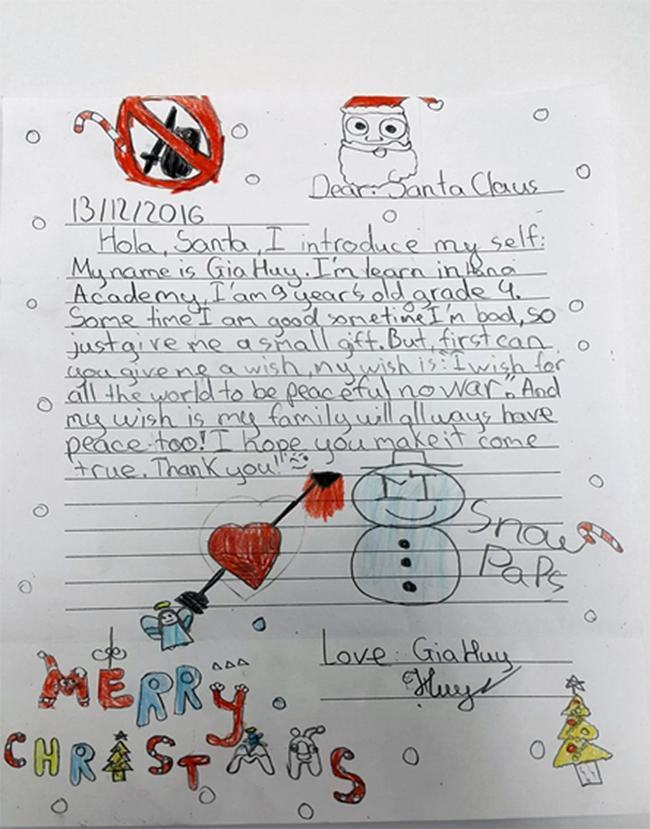 Dear: Santa Claus
13/12/2016
Hola, Santa, I introduce my self:
My name is Gia Huy. I'm learn in
Academy, I'am 9 year's old, grade 4.
Some time I am good sometime I'm bad, so
just give me a small gift. But, first can
you give me a wish, my wish is: "I wish for
all the world to be peaceful, no war". And
my wish is my family will allways have
peace too! I hope you make it come
true. Thank you!
Snow
Paps
Love: Gia Huy
Huy
MERRY
CHRISTMAS